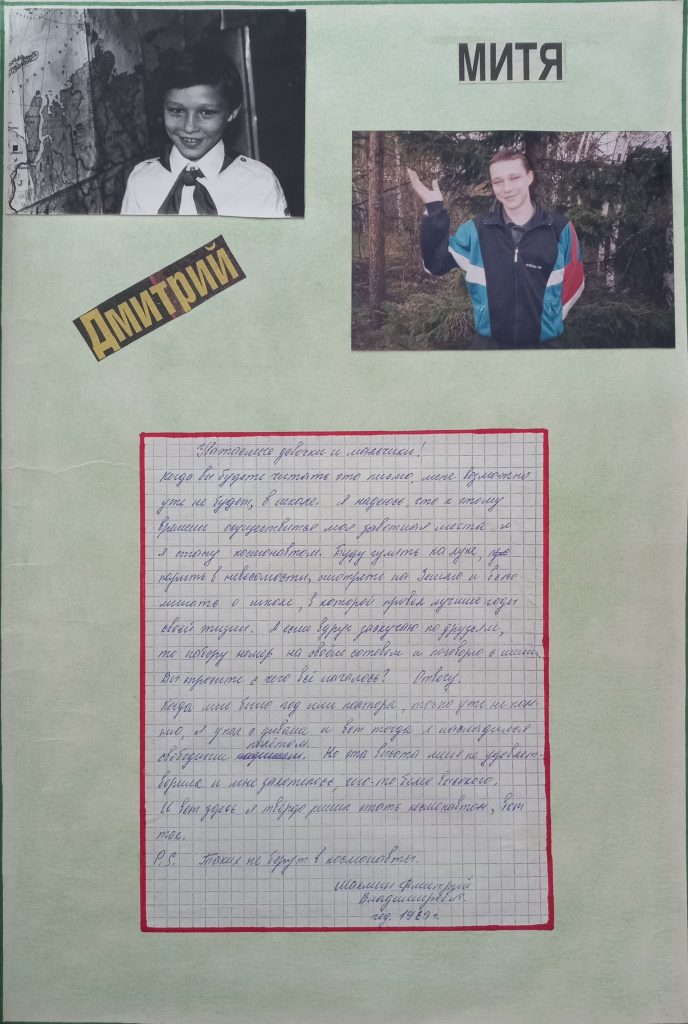 МИТЯ
Дмитрий
Уважаемые девочки и мальчики!
Когда вы будете читать это письмо, меня возможно
уже не будет, в школе. Я надеюсь, что к этому
времени осуществится моя заветная мечта, и
я стану космонавтом. Буду гулять на луне,
парить в невесомости, смотреть на Землю и вспо-
минать о школе, в которой провёл лучшие годы
своей жизни. А если вдруг заскучаю по друзьям,
то наберу номер на своём сотовом и поговорю с ними.
Вы спросите с чего всё началось? Отвечу.
Когда мне было год или полтора, точно уже не пом-
ню, я упал с дивана и вот тогда я насладился
свободным полётом. Но эта высота меня не удовлет-
ворила и мне захотелось, чего-то более высокого.
И вот здесь я твёрдо решил стать космонавтом, вот
так.
P.S. Таких не берут в космонавты.
Дмитрий
Владимирович
год. 1989г.